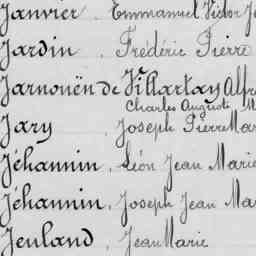 Janvier . Emmanuel Victor J
Jardin . Frédéric Pierre
Jarnouën de Villartay Alfr
Charles Auguste M
Jary . Joseph Pierre Mar
Jéhannin . Léon Jean Marie
Jéhannin . Joseph Jean Ma
Jeuland . Jean Marie